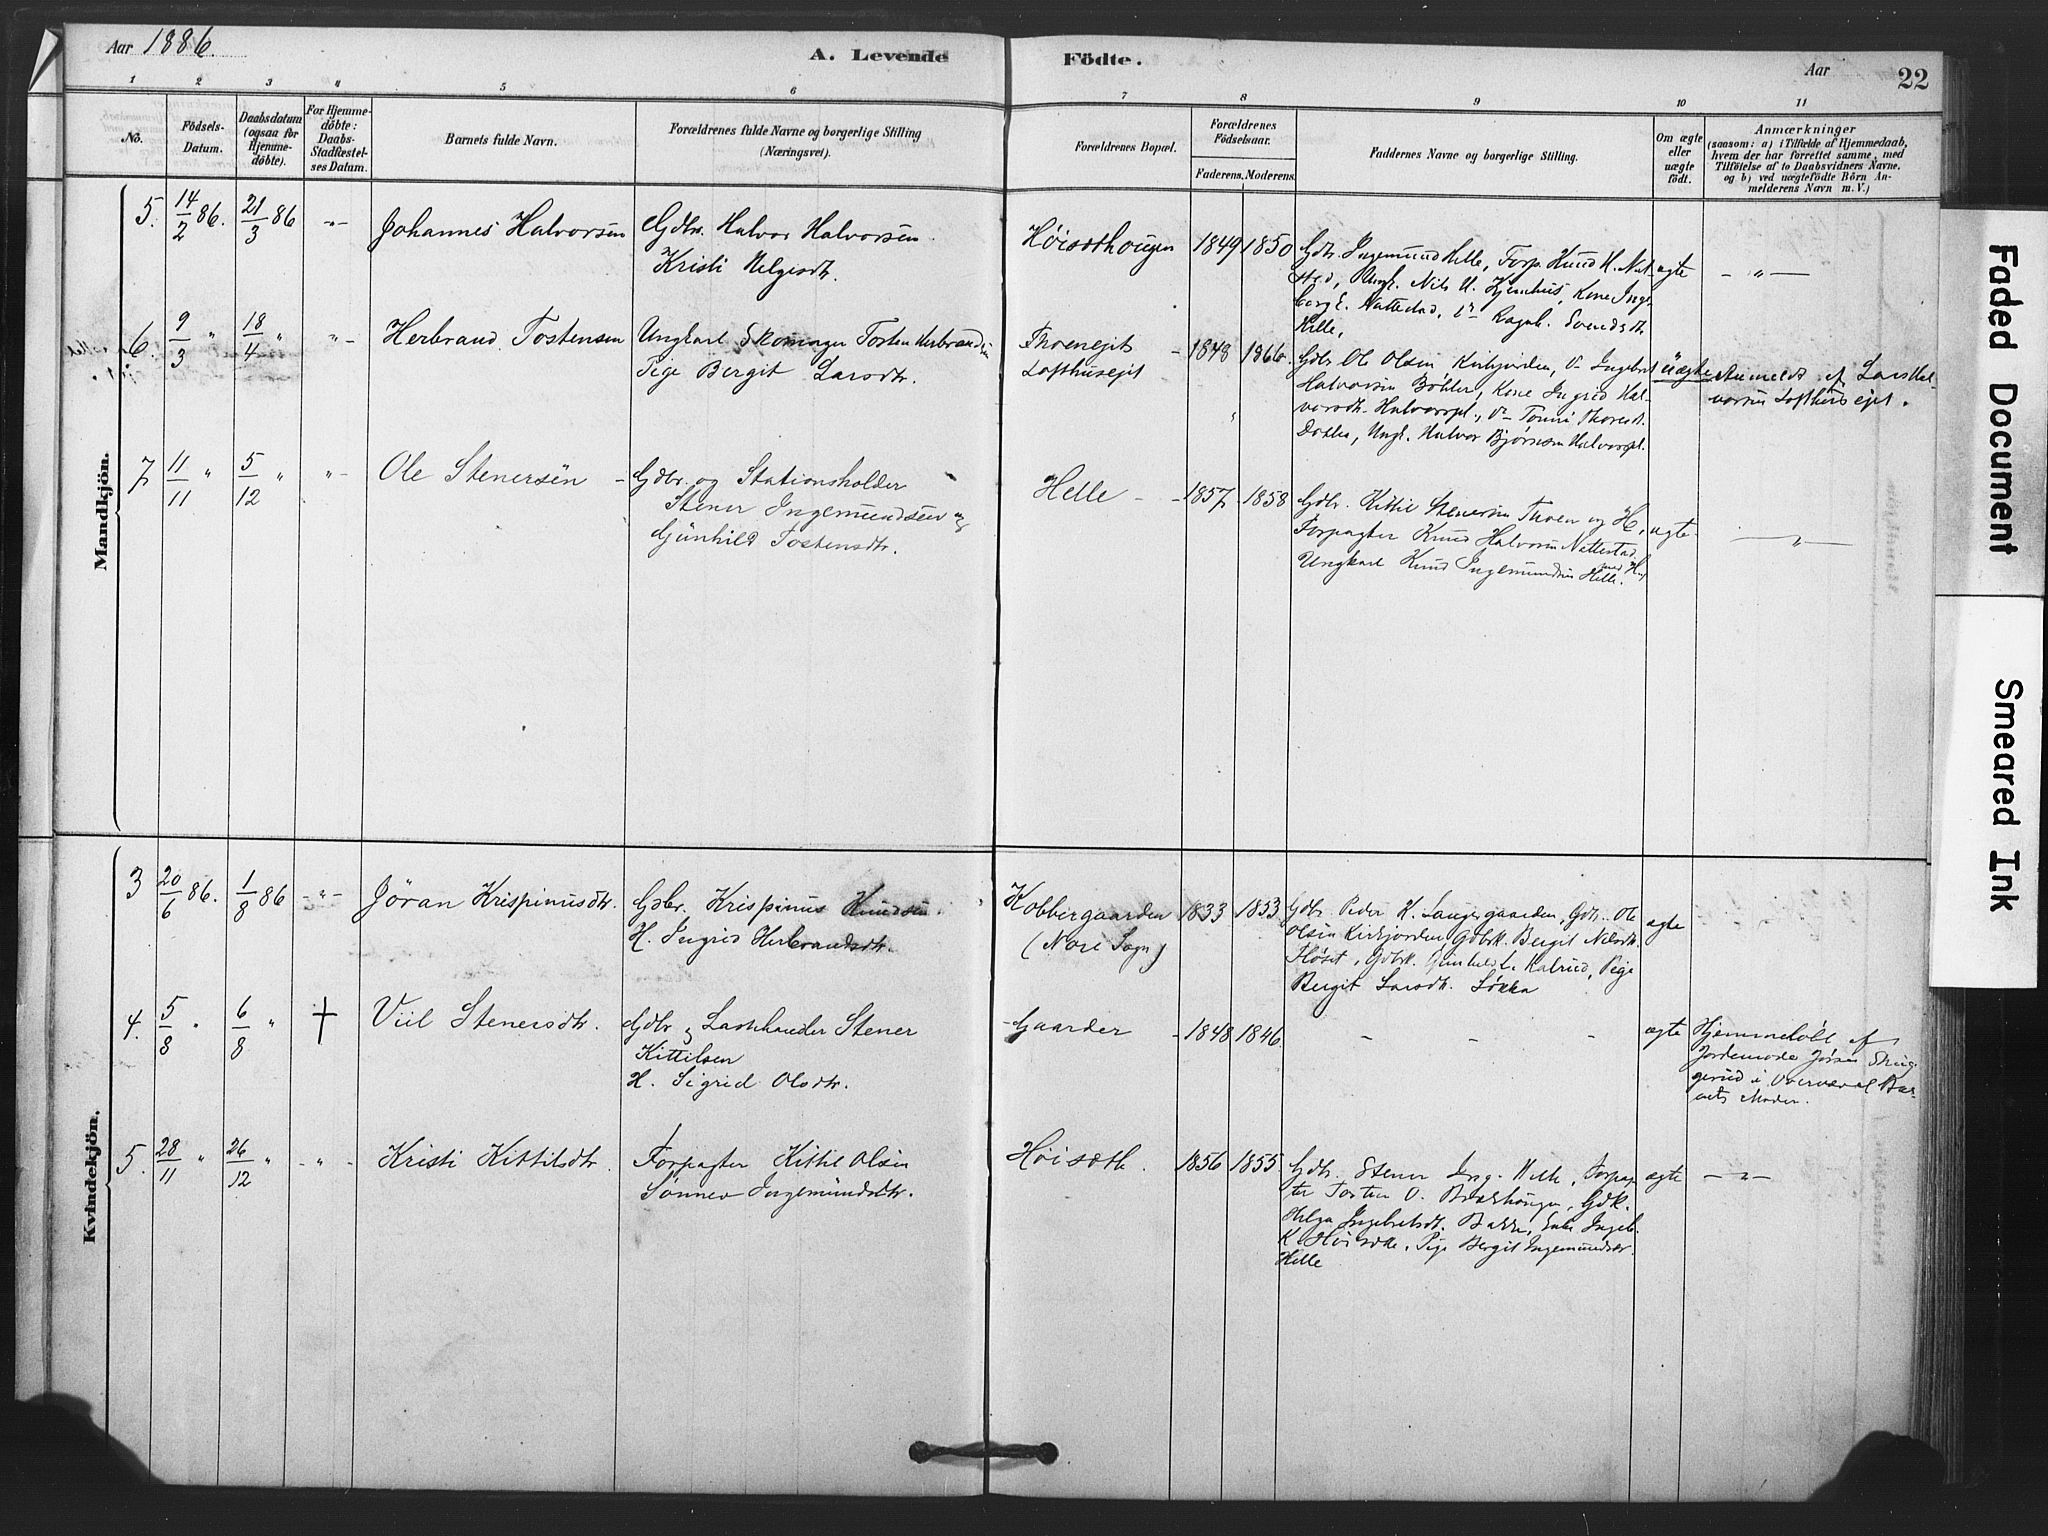 Aar 1886.
A. Levende Födte.
Aar
22
1 2 3 4 5 6 7 8 9 10 11
No.
Födsels-
Datum.
Daabsdatum
(ogsaa for
Hjemme-
döbte).
For Hjemme-
döbte:
Daabs-
Stadfæstel-
ses Datum.
Barnets fulde Navn.
Forældrenes fulde Navne og borgerlige Stilling
(Næringsvei).
Forældrenes Bopæl.
Forældrenes
Födselsaar.
Faderens. Moderens.
Faddernes Navne og borgerlige Stilling.
Om ægte
eller
uægte
födt.
Anmærkninger
(saasom: a) i Tilfælde af Hjemmedaab,
hvem der har forrettet samme, med
Tilföielse af to Daabsvidners Navne.
og b) ved uægtefödte Börn An-
melderens Navn m. V.)
Mandkjön.
5. 14/2 86. 21/3 86 -"-
Johannes Halvorsen
Gdbr. Halvor Halvorsen.
Kristi Helgesdtr.
Høisæthougen
1849 1850
Gdbr. Ingemund Helle, Forp. Knud H. Nat-
stad, Ungk. Nils Kone Inge-
borg E. Nattestad, Ragnh. Svendsdtr.
Helle,
ægte
- " -
6. 9/3 " 18/4 " "-
Herbrand Tostensen
Ungkarl Skomager Tosten Herbrandsen
Pige Bergit Larsdtr.
Thoenejet
Lofthusejet
1848 1866.
Gdbr. Ole Olsen Kirkjorden, Ingebret
Halvorsen Kone Ingrid Hal-
vorsdtr. Halvorspl., Tonne Thoresd.
Ungk. Halvor Bjørnsen Halvorspl.
üægte
Anmeldt af Lars Hal-
vorsen Lofthusejet.
7 11/11 " 5/12 " "-
Ole Stenersen -
Gdbr. og Stationsholder
Stener Ingemundsen og
Günhild Tostensdtr.
Helle - -
1857 1858
Gdbr. Kittil Stenersen Thoen og H,
Forpagter Knud Halvorsen Nattestad med H,
Ungkarl Knud Ingemundsen Helle.
ægte
- " -
Kvindekjön.
3 20/6 86. 1/8 86 -"-
Jöran Krispinusdtr.
Gdbr. Krispinus Knudsen.
H. Ingrid Herbrandsdtr.
Kobbergaarden
(Nore Sogn)
1833 1833
Gdbr. Peder K. Langergaarden, Gdb. Ole
Olsen Kirkjorden, Gdbrk. Bergit Nilsdtr.
Fløset, Gdbrk. Kalrud, Pige
Bergit Larsdtr. Søkka
ægte
4. 5/8 " 6/8 " †
Viil Stenersdtr.
Gdbr. & Landhandler Stener
Kittilsen
H. Sigrid Olsdtr.
- Gaarder -
1848 1846.
- - -
ægte
Hjemmedøbt af
Jordemoder Jøran
gerud i Overværel Bar-
nets Moder.
5. 28/11 " 26/12 " -"-
Kristi Kittilsdtr.
Forpagter Kittil Olsen
Sönnev Ingemündsdtr.
Høisæth.
1856 1855
Gdbr. Stener Ing. Helle, Forpag-
ter Tosten O. Gdk.
Helga Ingebretsdt. Bakke, Enke Ingeb.
K. Høisæth, Pige Bergit Ingemundsdtr.
Helle
ægte
- " -
Faded Document
Smeared Ink